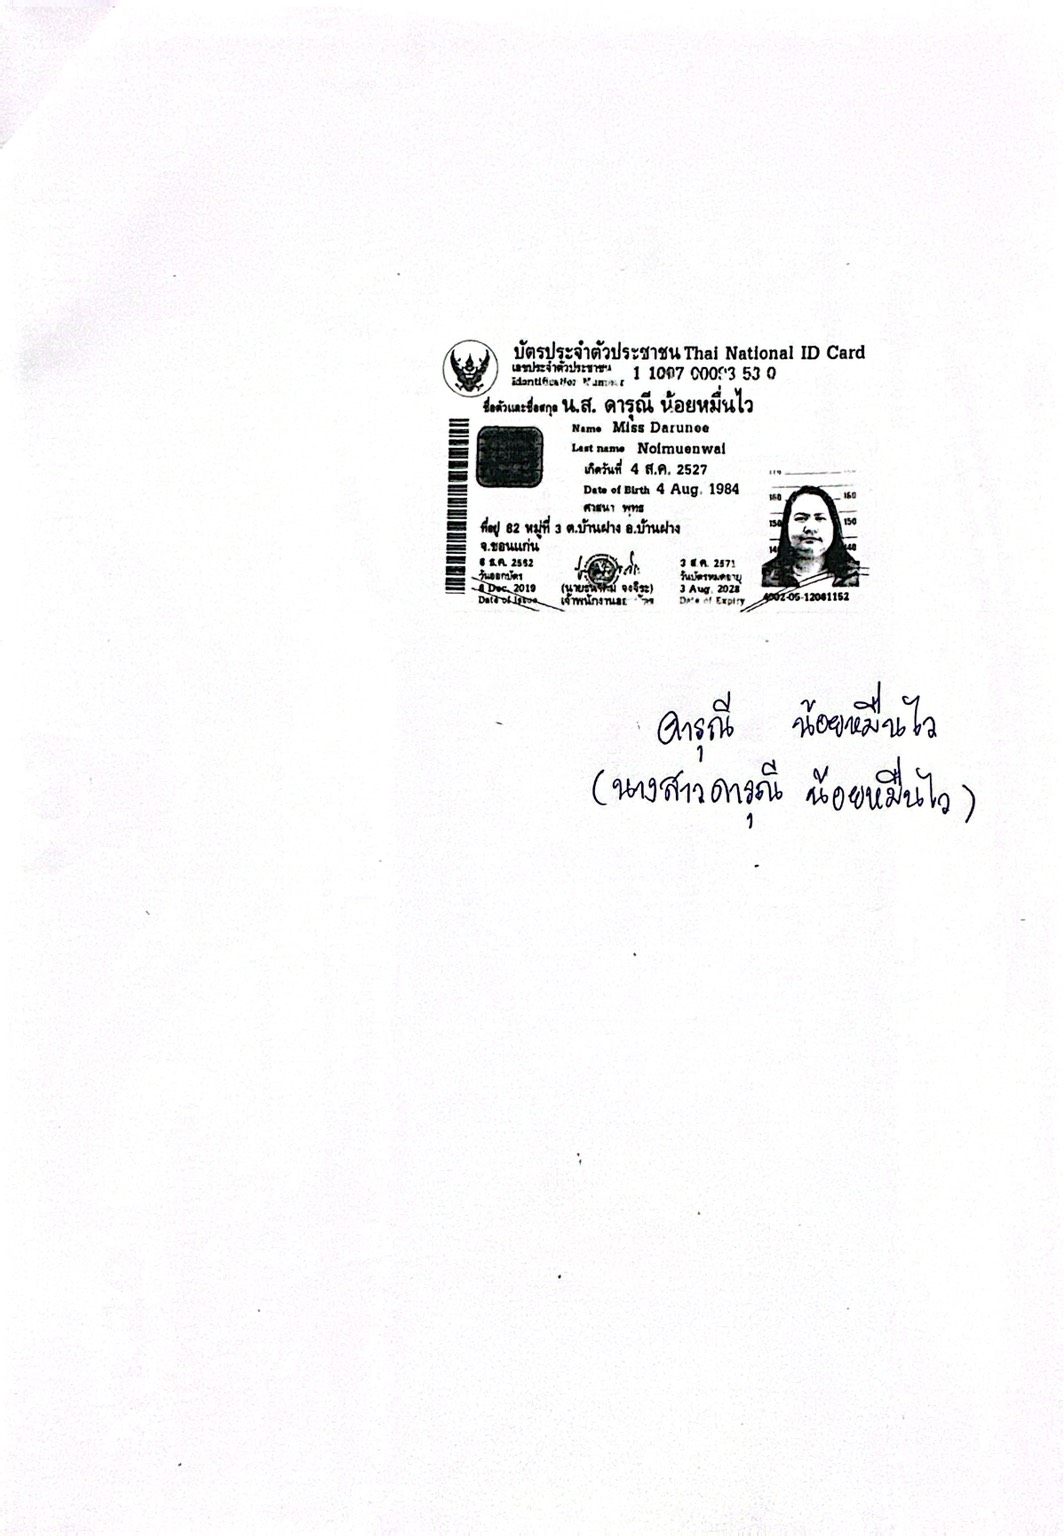 บัตรประจำตัวประชาชน Thai National ID Card
เลขประจำตัวประชาชน
Identification Number
1 1007 53 0
ชื่อตัวและชื่อสกุล น.ส. ดารุณี น้อยหมื่นไว
Name Miss Darunee
Last name Noimuenwai
เกิดวันที่ 4 ส.ค. 2527
Date of Birth 4 Aug. 1984
ศาสนา พุทธ
ที่อยู่ 82 หมู่ที่ 3 ต.บ้านฝาง อ.บ้านฝาง
จ.ขอนแก่น
6 ธ.ค. 2562
วันออกบัตร
6 Dec. 2019
Date of Issue
เจ้าพนักงานออกบัตร
3 ส.ค. 2571
วันบัตรหมดอายุ
3 Aug. 2028
Date of Expiry
160 160
150 150
140 140
4002-05-12061152
ดารุณี น้อยหมื่นไว
(นางสาวดารุณี น้อยหมื่นไว)